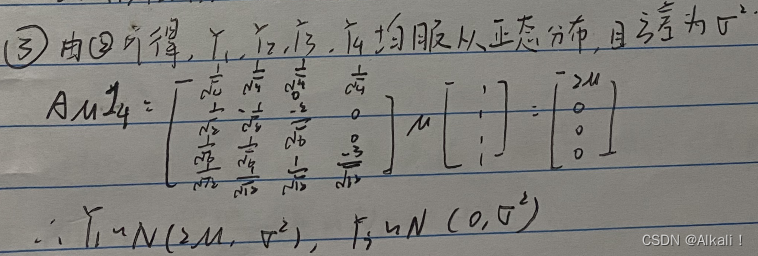 ③ 由②可得, Y₁, Y₂, Y₃, Y₄ 均服从正态分布, 且方差为 σ².
AμI₄ = [ 1/√4 1/√4 1/√4 1/√4
1/√2 -1/√2 0 0
1/√6 1/√6 -2/√6 0
1/√12 1/√12 1/√12 -3/√12 ] μ [ 1 1 1 1 ] = [ 2μ 0 0 0 ]
∴ Y₁ ~ N(2μ, σ²), Yⱼ ~ N(0, σ²)
CSDN @Alkali！